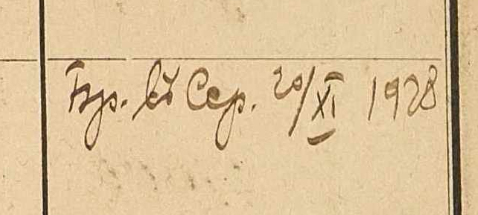 Бр. въ Сер. 20/XI 1928